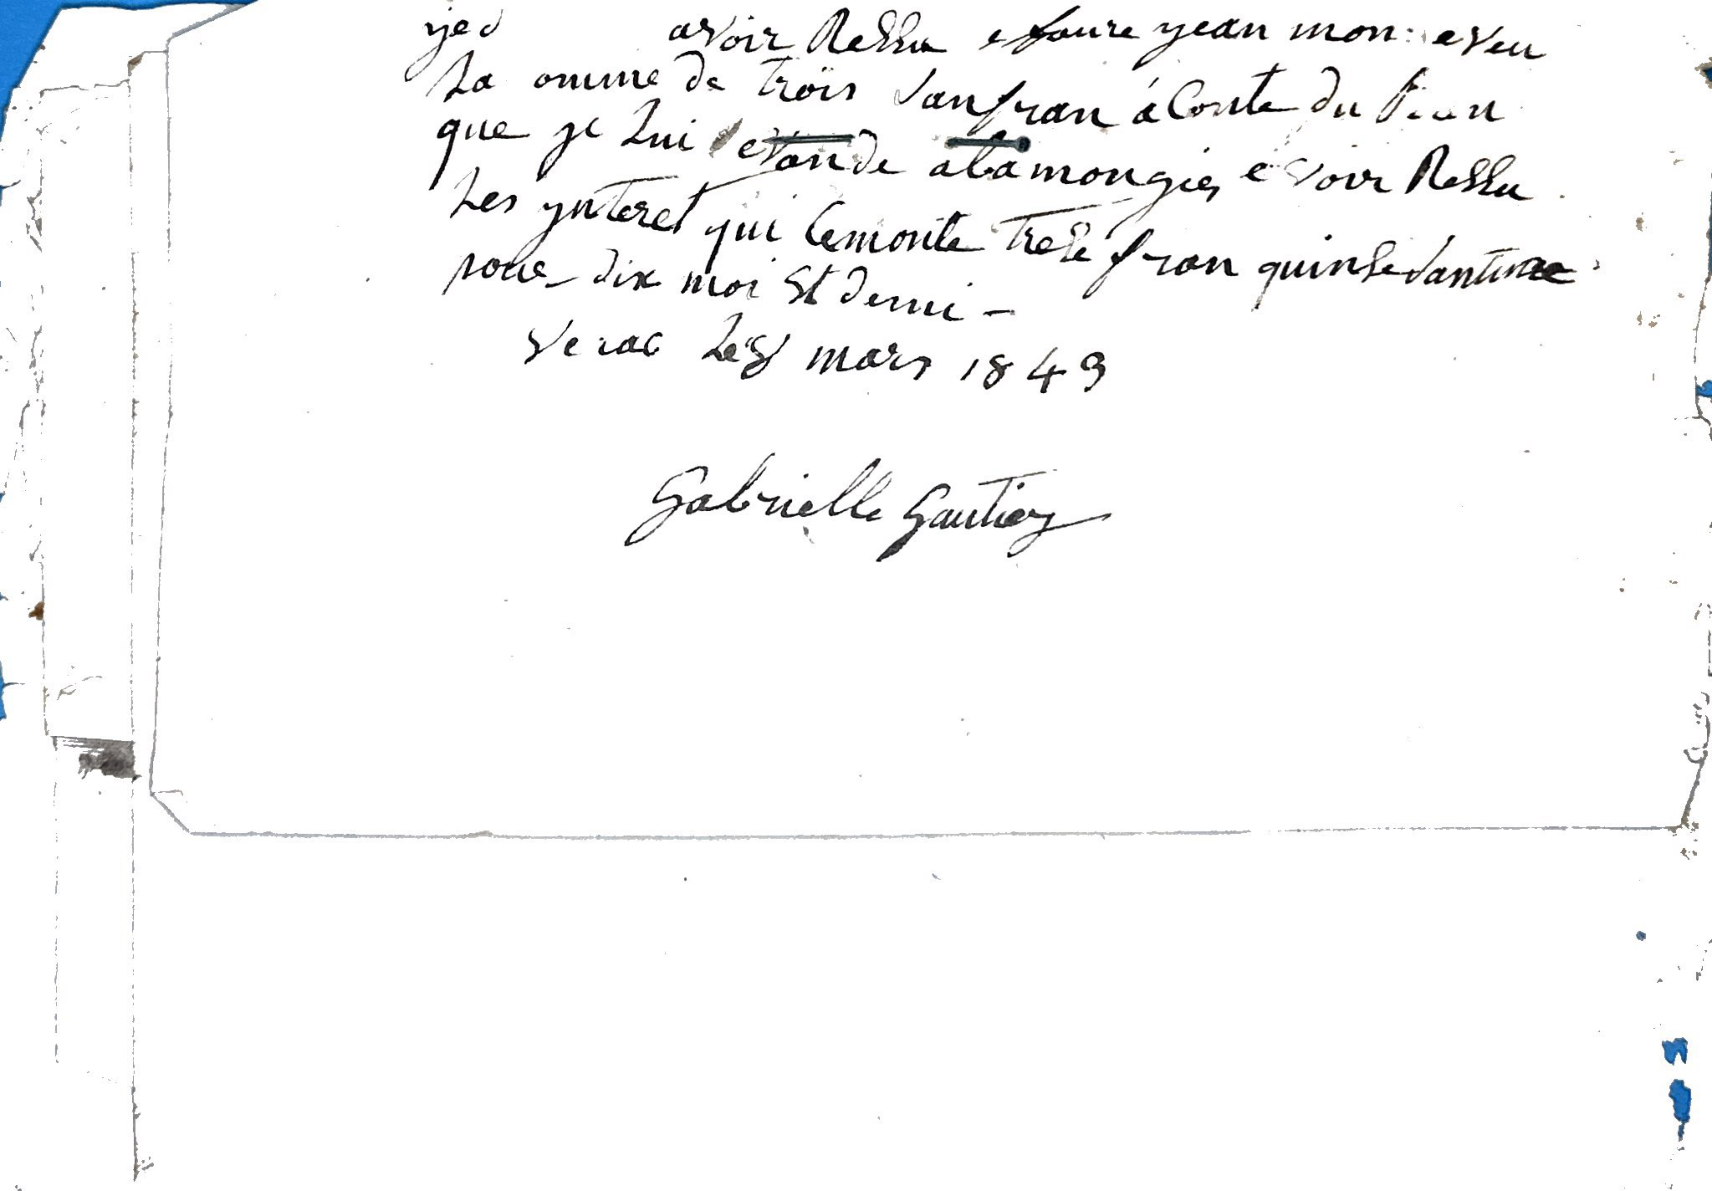 avoir Ressu e faure yean mon eveu
La omme de trois sanfran á Conte du
que je Lui evande alamongie e voir Ressu
Les ynteret qui Cemonte trese fran quinse santime
pour dix moi et demi -
verac Le 8 mars 1849
Gabrielle Gautier